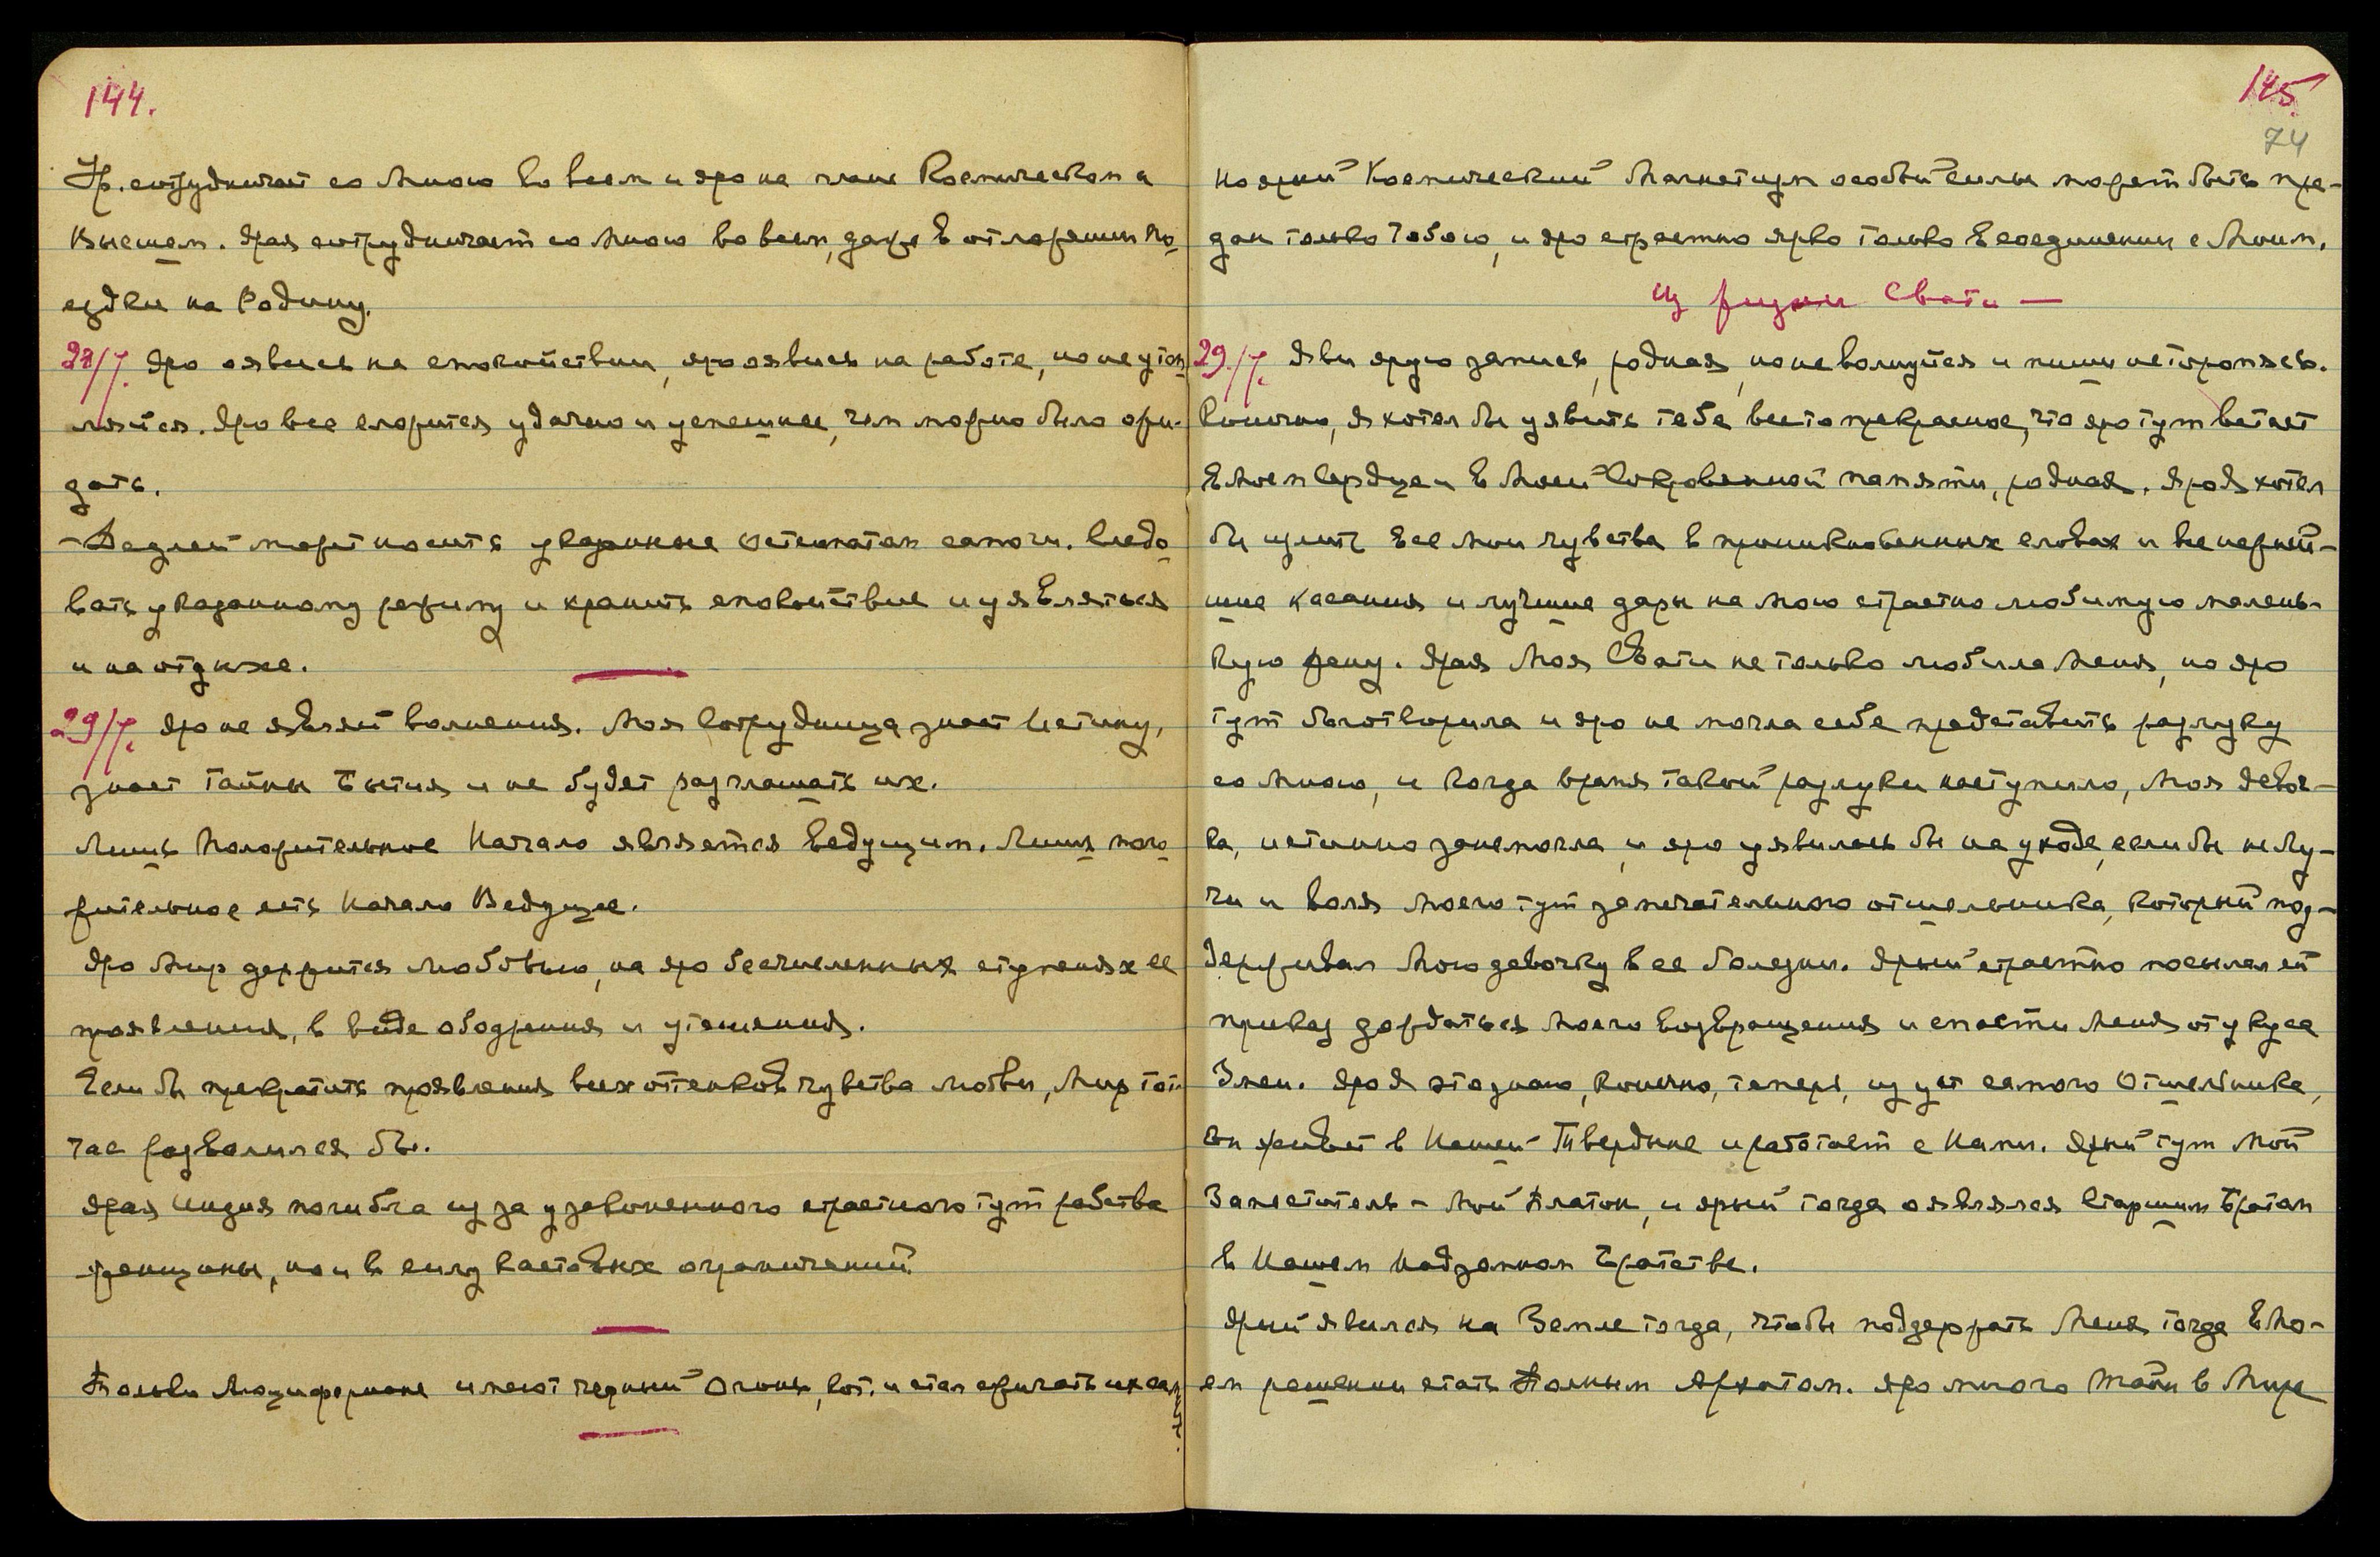 144.
Ур. сотрудничает со Мною во всем и яро на плане Космическом и
Высшем. Ярая сотрудничает со Мною во всем, даже в отложении по-
ездки на Родину.
28/7. Яро явись на спокойствии, яро явись на работе, но не утом-
ляйся. Яро все сложится удачно и успешнее, чем можно было ожи-
дать.
может носить указанные самоги. Следо-
вать указанному режиму и хранить спокойствие и уявляться
и на отдыхе.
29/7. Яро не являй волнения. Моя Сотрудница знает Истину,
знает Тайны Бытия и не будет разглашать их.
Лишь Положительное Начало является Ведущим. Лишь поло-
жительное есть Начало Ведущее.
Яро Мир держится любовью, на яро бесчисленных ступенях ее
проявления, в виде ободрения и утешения.
Если бы прекратить проявления всех оттенков чувства любви, Мир тот-
час развалился бы.
Ярая Индия погибла из за узаконенного страстного тут рабства
женщины, но и в силу кастовых ограничений.
Только Люциферяне имеют черный Огонь, вот и стал сжигать их самих.
145
74
но ярый Космический Магнетизм особый силы может быть пре-
дан только Тобою, и яро страстно ярко только в соединении с Моим.
Из жизни Свати —
29./7. Яви ярую запись, родная, но не волнуйся и пиши не торопясь.
Конечно, Я хотел бы уявить тебе все то прекрасное, что яро тут встает
в Моем Сердце и в Моей Сокровенной памяти, родная. Яро Я хотел
бы излить все мои чувства в проникновенных словах и все нежней-
шие касания и лучшие дары на мою страстно любимую малень-
кую жену. Ярая Моя Свати не только любила Меня, но яро
тут боготворила и яро не могла себе представить разлуку
со Мною, и когда время такой разлуки наступило, Моя девоч-
ка, истинно занемогла и яро уявилась бы на уходе, если бы не Лу-
чи и воля Моего тут замечательного отшельника, который под-
держивал Мою девочку в ее болезни. Ярый страстно посылал ей
приказ дождаться Моего возвращения и спасти Меня от укуса
Змеи. Яро Я это знаю, конечно, теперь, из уст самого Отшельника,
он живет в Нашей Твердыне и работает с Нами. Ярый тут Мой
Заместитель – Мой Платон, и ярый тогда оявлялся Старшим Братом
в Нашем Надземном Братстве.
Ярый явился на Земле тогда, чтобы поддержать Меня тогда в Мо-
ем решении стать Полным Архатом. Яро много Тайн в Мире